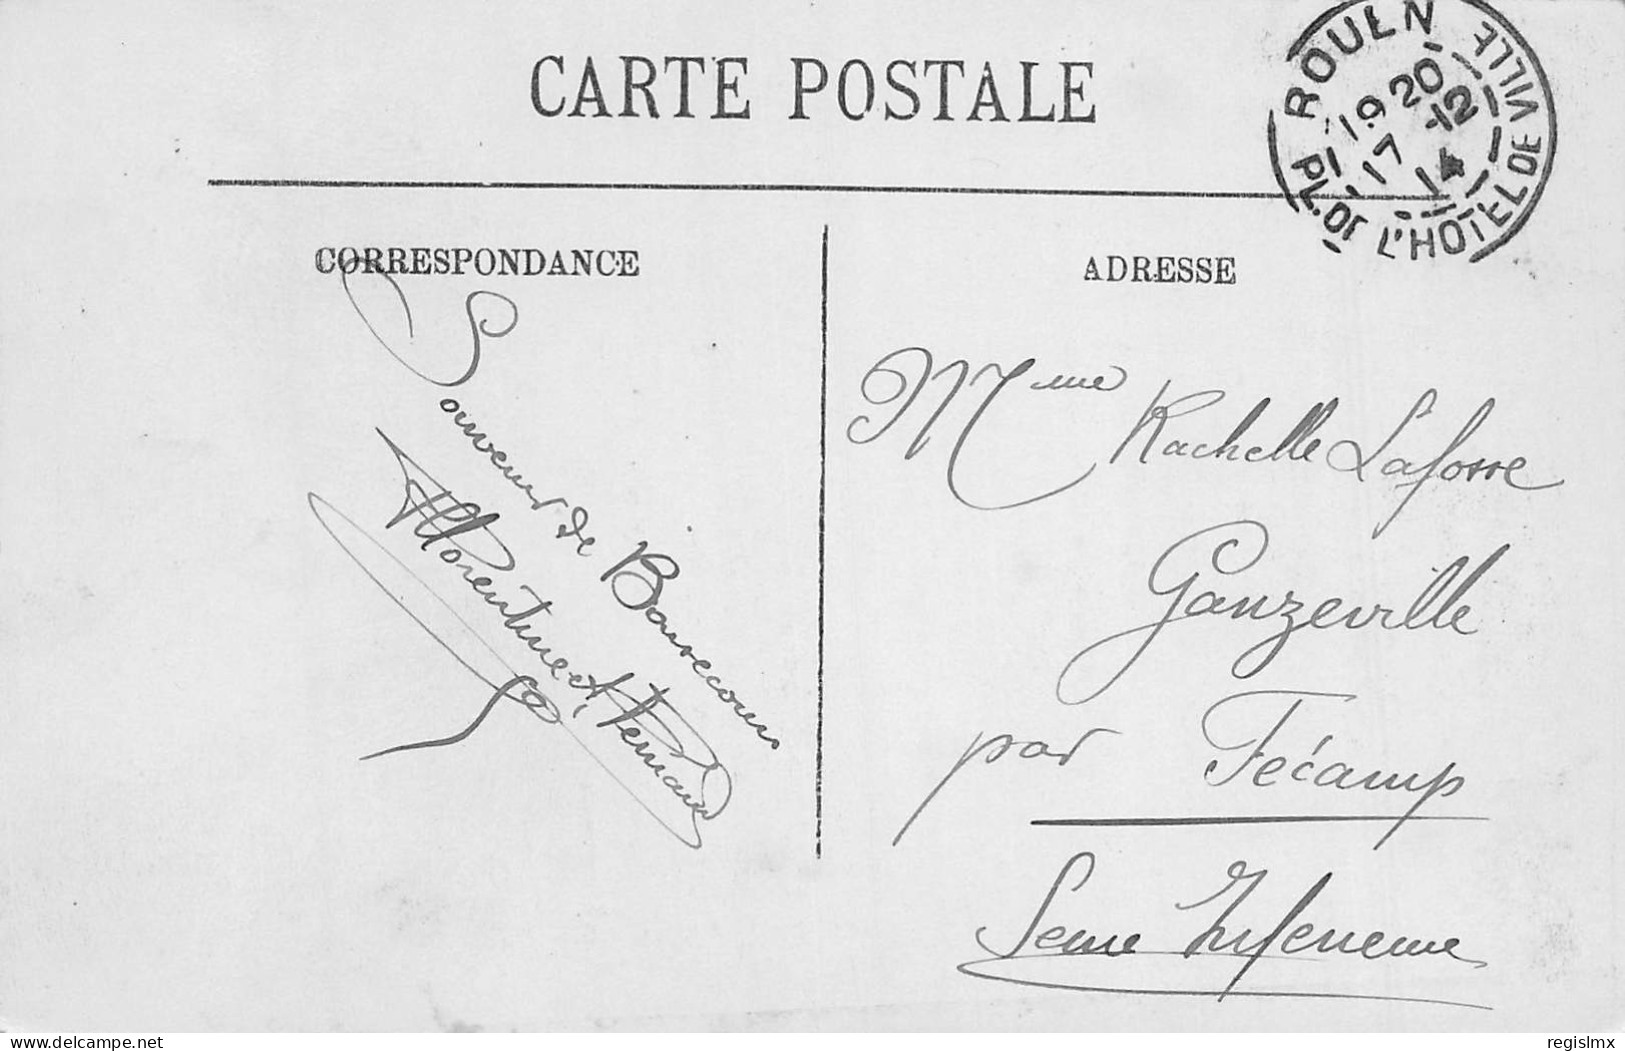 CARTE POSTALE
ROUEN PL. DE L'HOTEL DE VILLE
19 20
17 -12
14
CORRESPONDANCE
ADRESSE
Souvenir de Bonsecours
Florentine et Fernand
Mme Rachelle Lafosse
Ganzeville
par Fécamp
Seine Inferieure
delcampe.net
regislmx